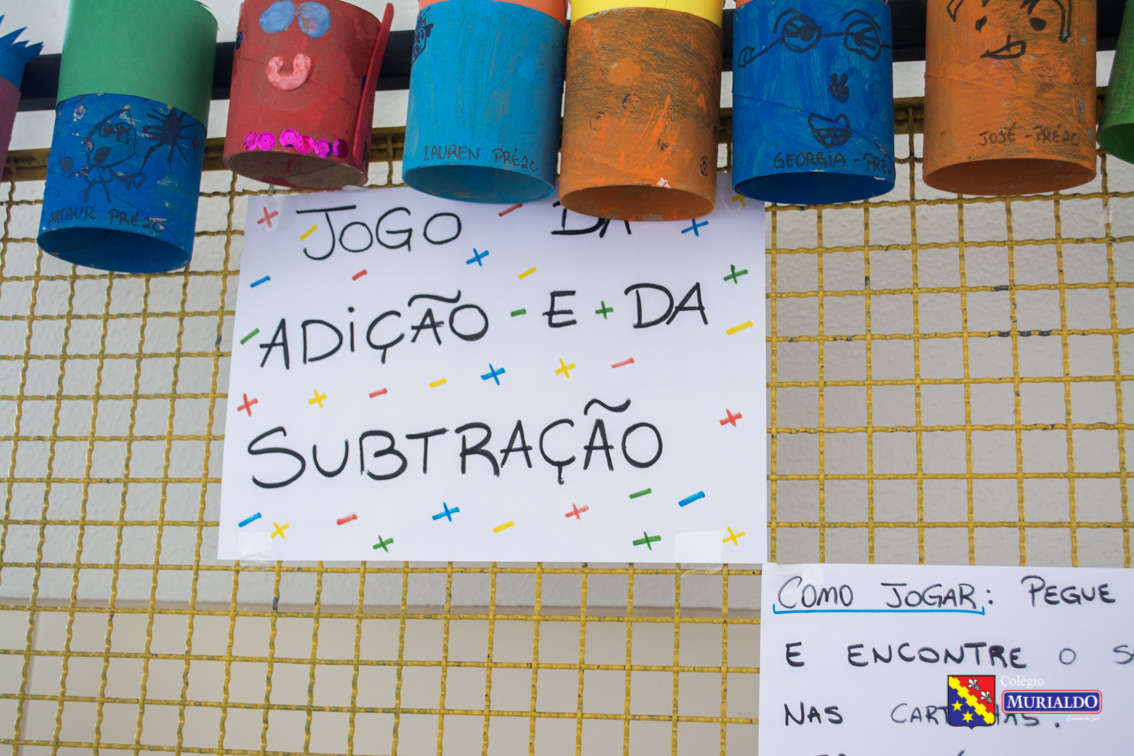 ARTHUR PRÉ2C
LAUREN PRÉ2C
GEORGIA - PRÉ
JOSÉ - PRÉ2C
JOGO DA
ADIÇÃO E DA
SUBTRAÇÃO
COMO JOGAR: PEGUE
E ENCONTRE O
NAS
Colégio
MURIALDO
Caxias do Sul